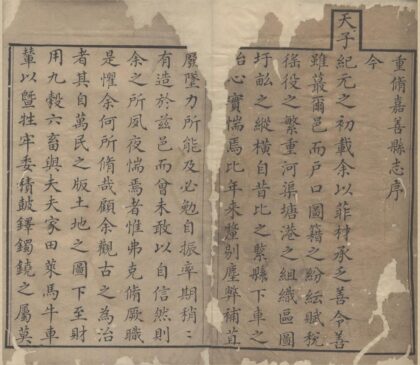 重脩嘉善縣志序
今
天子紀元之初載余以菲材承乏善令善
雖蕞爾邑而戶口圖籍之紛紜賦稅
徭役之繁重河渠塘港之組織區圖
圩畝之縱橫自昔比之繁縣下車之
始心實惴焉比年來釐剔塵弊補苴
墜力所能及必勉自振率期稍〻
有造於茲邑而曾未敢以自信然則
余之所夙夜惴焉者惟弗克脩厥職
是懼余何所脩哉顧余觀古之為治
者其自萬民之版土地之圖下至財
用九穀六畜與夫夫家田萊馬牛車
輦以暨牲牢委積鼓鐸鐲鐃之屬莫